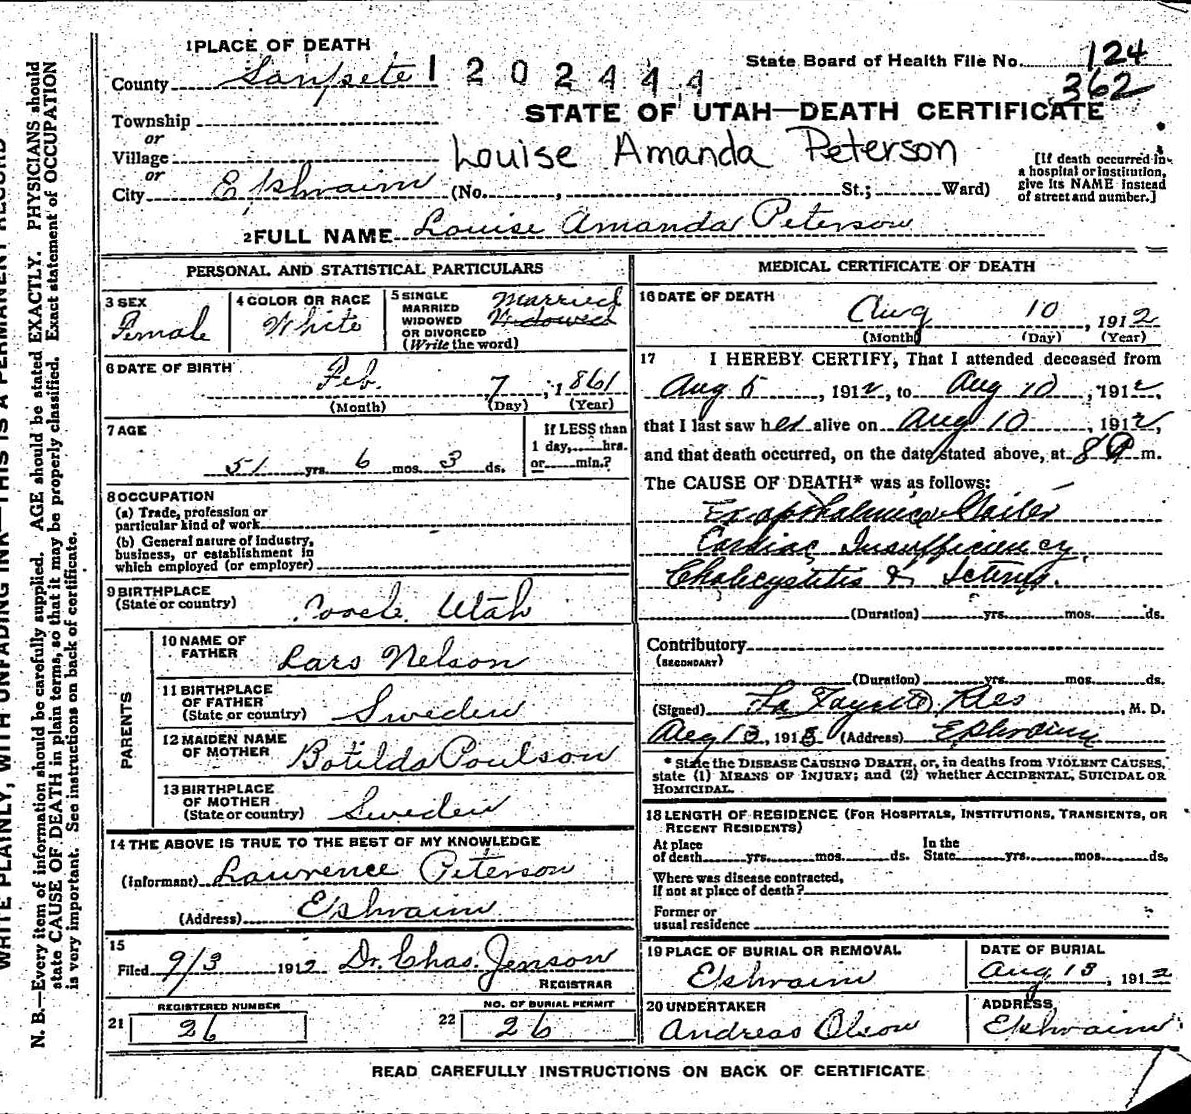 1 PLACE OF DEATH
County Sanpete
1 2 0 2 4 4 4
State Board of Health File No. 124
362
STATE OF UTAH—DEATH CERTIFICATE
Township
or
Village
or
City Ephraim
Louise Amanda Peterson
(No. , St.; Ward)
[If death occurred in
a hospital or institution,
give its NAME instead
of street and number.]
2 FULL NAME Louise Amanda Peterson
PERSONAL AND STATISTICAL PARTICULARS
3 SEX Female
4 COLOR OR RACE White
5 SINGLE MARRIED WIDOWED OR DIVORCED (Write the word) Married Widowed
6 DATE OF BIRTH Feb. 7, 1861
(Month) (Day) (Year)
7 AGE 51 yrs. 6 mos. 3 ds.
If LESS than
1 day, hrs.
or min.?
8 OCCUPATION
(a) Trade, profession or
particular kind of work
(b) General nature of industry,
business, or establishment in
which employed (or employer)
9 BIRTHPLACE
(State or country) Utah
PARENTS
10 NAME OF
FATHER Lars Nelson
11 BIRTHPLACE
OF FATHER
(State or country) Sweden
12 MAIDEN NAME
OF MOTHER Botilda Poulson
13 BIRTHPLACE
OF MOTHER
(State or country) Sweden
14 THE ABOVE IS TRUE TO THE BEST OF MY KNOWLEDGE
(Informant) Lawrence Peterson
(Address) Ephraim
15
Filed 9/3 1912 Dr. Chas. Jenson
REGISTRAR
REGISTERED NUMBER
21 26
NO. OF BURIAL PERMIT
22 26
MEDICAL CERTIFICATE OF DEATH
16 DATE OF DEATH
Aug 10, 1912
(Month) (Day) (Year)
17 I HEREBY CERTIFY, That I attended deceased from
Aug 5, 1912, to Aug 10, 1912,
that I last saw her alive on Aug 10, 1912,
and that death occurred, on the date stated above, at 8 m.
The CAUSE OF DEATH* was as follows:
Exopthalmic Goiter
Cardiac Insufficiency
Cholecystitis & Icterus.
(Duration) yrs. mos. ds.
Contributory
(SECONDARY)
(Duration) yrs. mos. ds.
(Signed) La Fayette Rees, M. D.
Aug 13, 1913 (Address) Ephraim
* State the DISEASE CAUSING DEATH, or, in deaths from VIOLENT CAUSES,
state (1) MEANS OF INJURY; and (2) whether ACCIDENTAL, SUICIDAL OR
HOMICIDAL.
18 LENGTH OF RESIDENCE (FOR HOSPITALS, INSTITUTIONS, TRANSIENTS, OR
RECENT RESIDENTS)
At place In the
of death yrs. mos. ds. State yrs. mos. ds.
Where was disease contracted,
If not at place of death?
Former or
usual residence
19 PLACE OF BURIAL OR REMOVAL
Ephraim
DATE OF BURIAL
Aug 13, 1912
20 UNDERTAKER
Andreas Olson
ADDRESS
Ephraim
READ CAREFULLY INSTRUCTIONS ON BACK OF CERTIFICATE
WRITE PLAINLY, WITH UNFADING INK—THIS IS A PERMANENT RECORD
N. B.—Every item of information should be carefully supplied. AGE should be stated EXACTLY. PHYSICIANS should
state CAUSE OF DEATH in plain terms, so that it may be properly classified. Exact statement of OCCUPATION
is very important. See instructions on back of certificate.